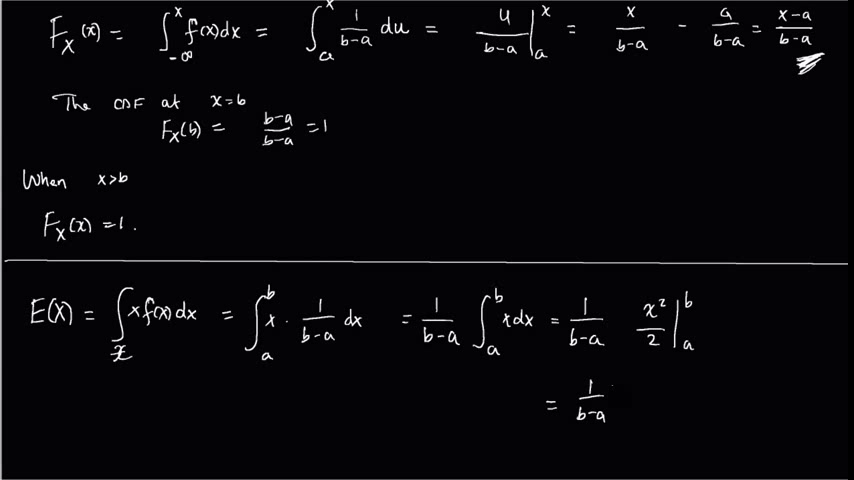 F_X(x) = ∫_{-∞}^{x} f(x)dx = ∫_{a}^{x} 1/(b-a) du = u/(b-a) |_{a}^{x} = x/(b-a) - a/(b-a) = (x-a)/(b-a)
The CDF at x=b
F_X(b) = (b-a)/(b-a) = 1
When x>b
F_X(x) = 1.
E(X) = ∫_{x} x f(x)dx = ∫_{a}^{b} x · 1/(b-a) dx = 1/(b-a) ∫_{a}^{b} x dx = 1/(b-a) x²/2 |_{a}^{b}
= 1/(b-a)